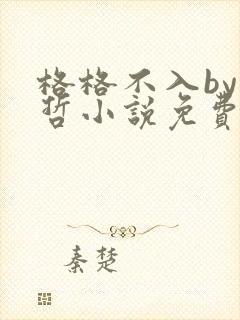 格格不入by
哲小説免費
秦楚